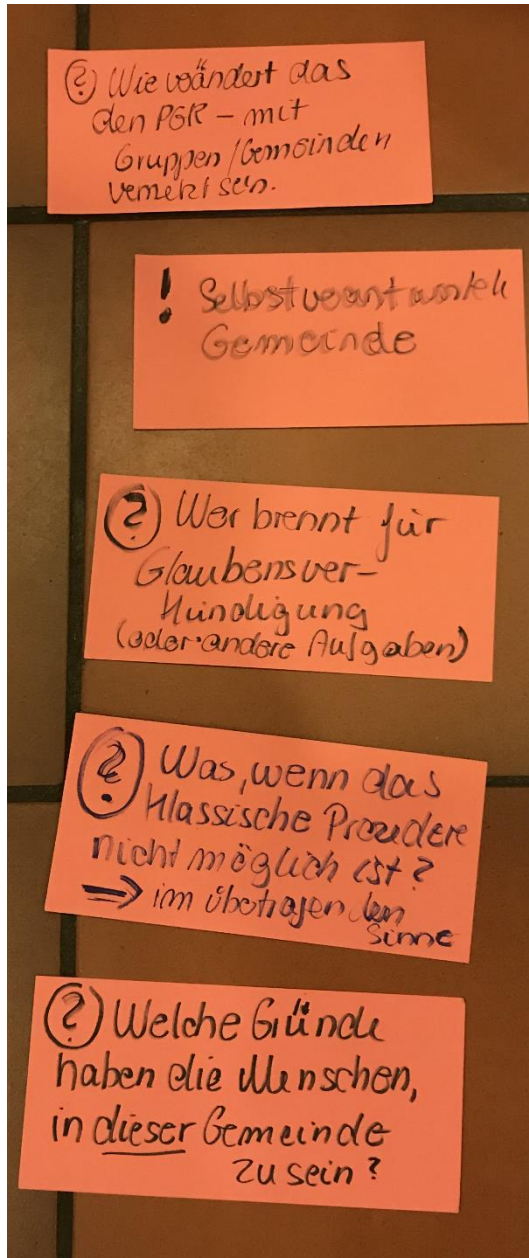 ? Wie verändert das
den PGR – mit
Gruppen/Gemeinden
vernetzt sein.
! Selbstverantwortete
Gemeinde
? Wer brennt für
Glaubensver-
kündigung
(oder andere Aufgaben)
? Was, wenn das
klassische Prozedere
nicht möglich ist?
⇒ im übertragenden
Sinne
? Welche Gründe
haben die Menschen,
in dieser Gemeinde
zu sein?